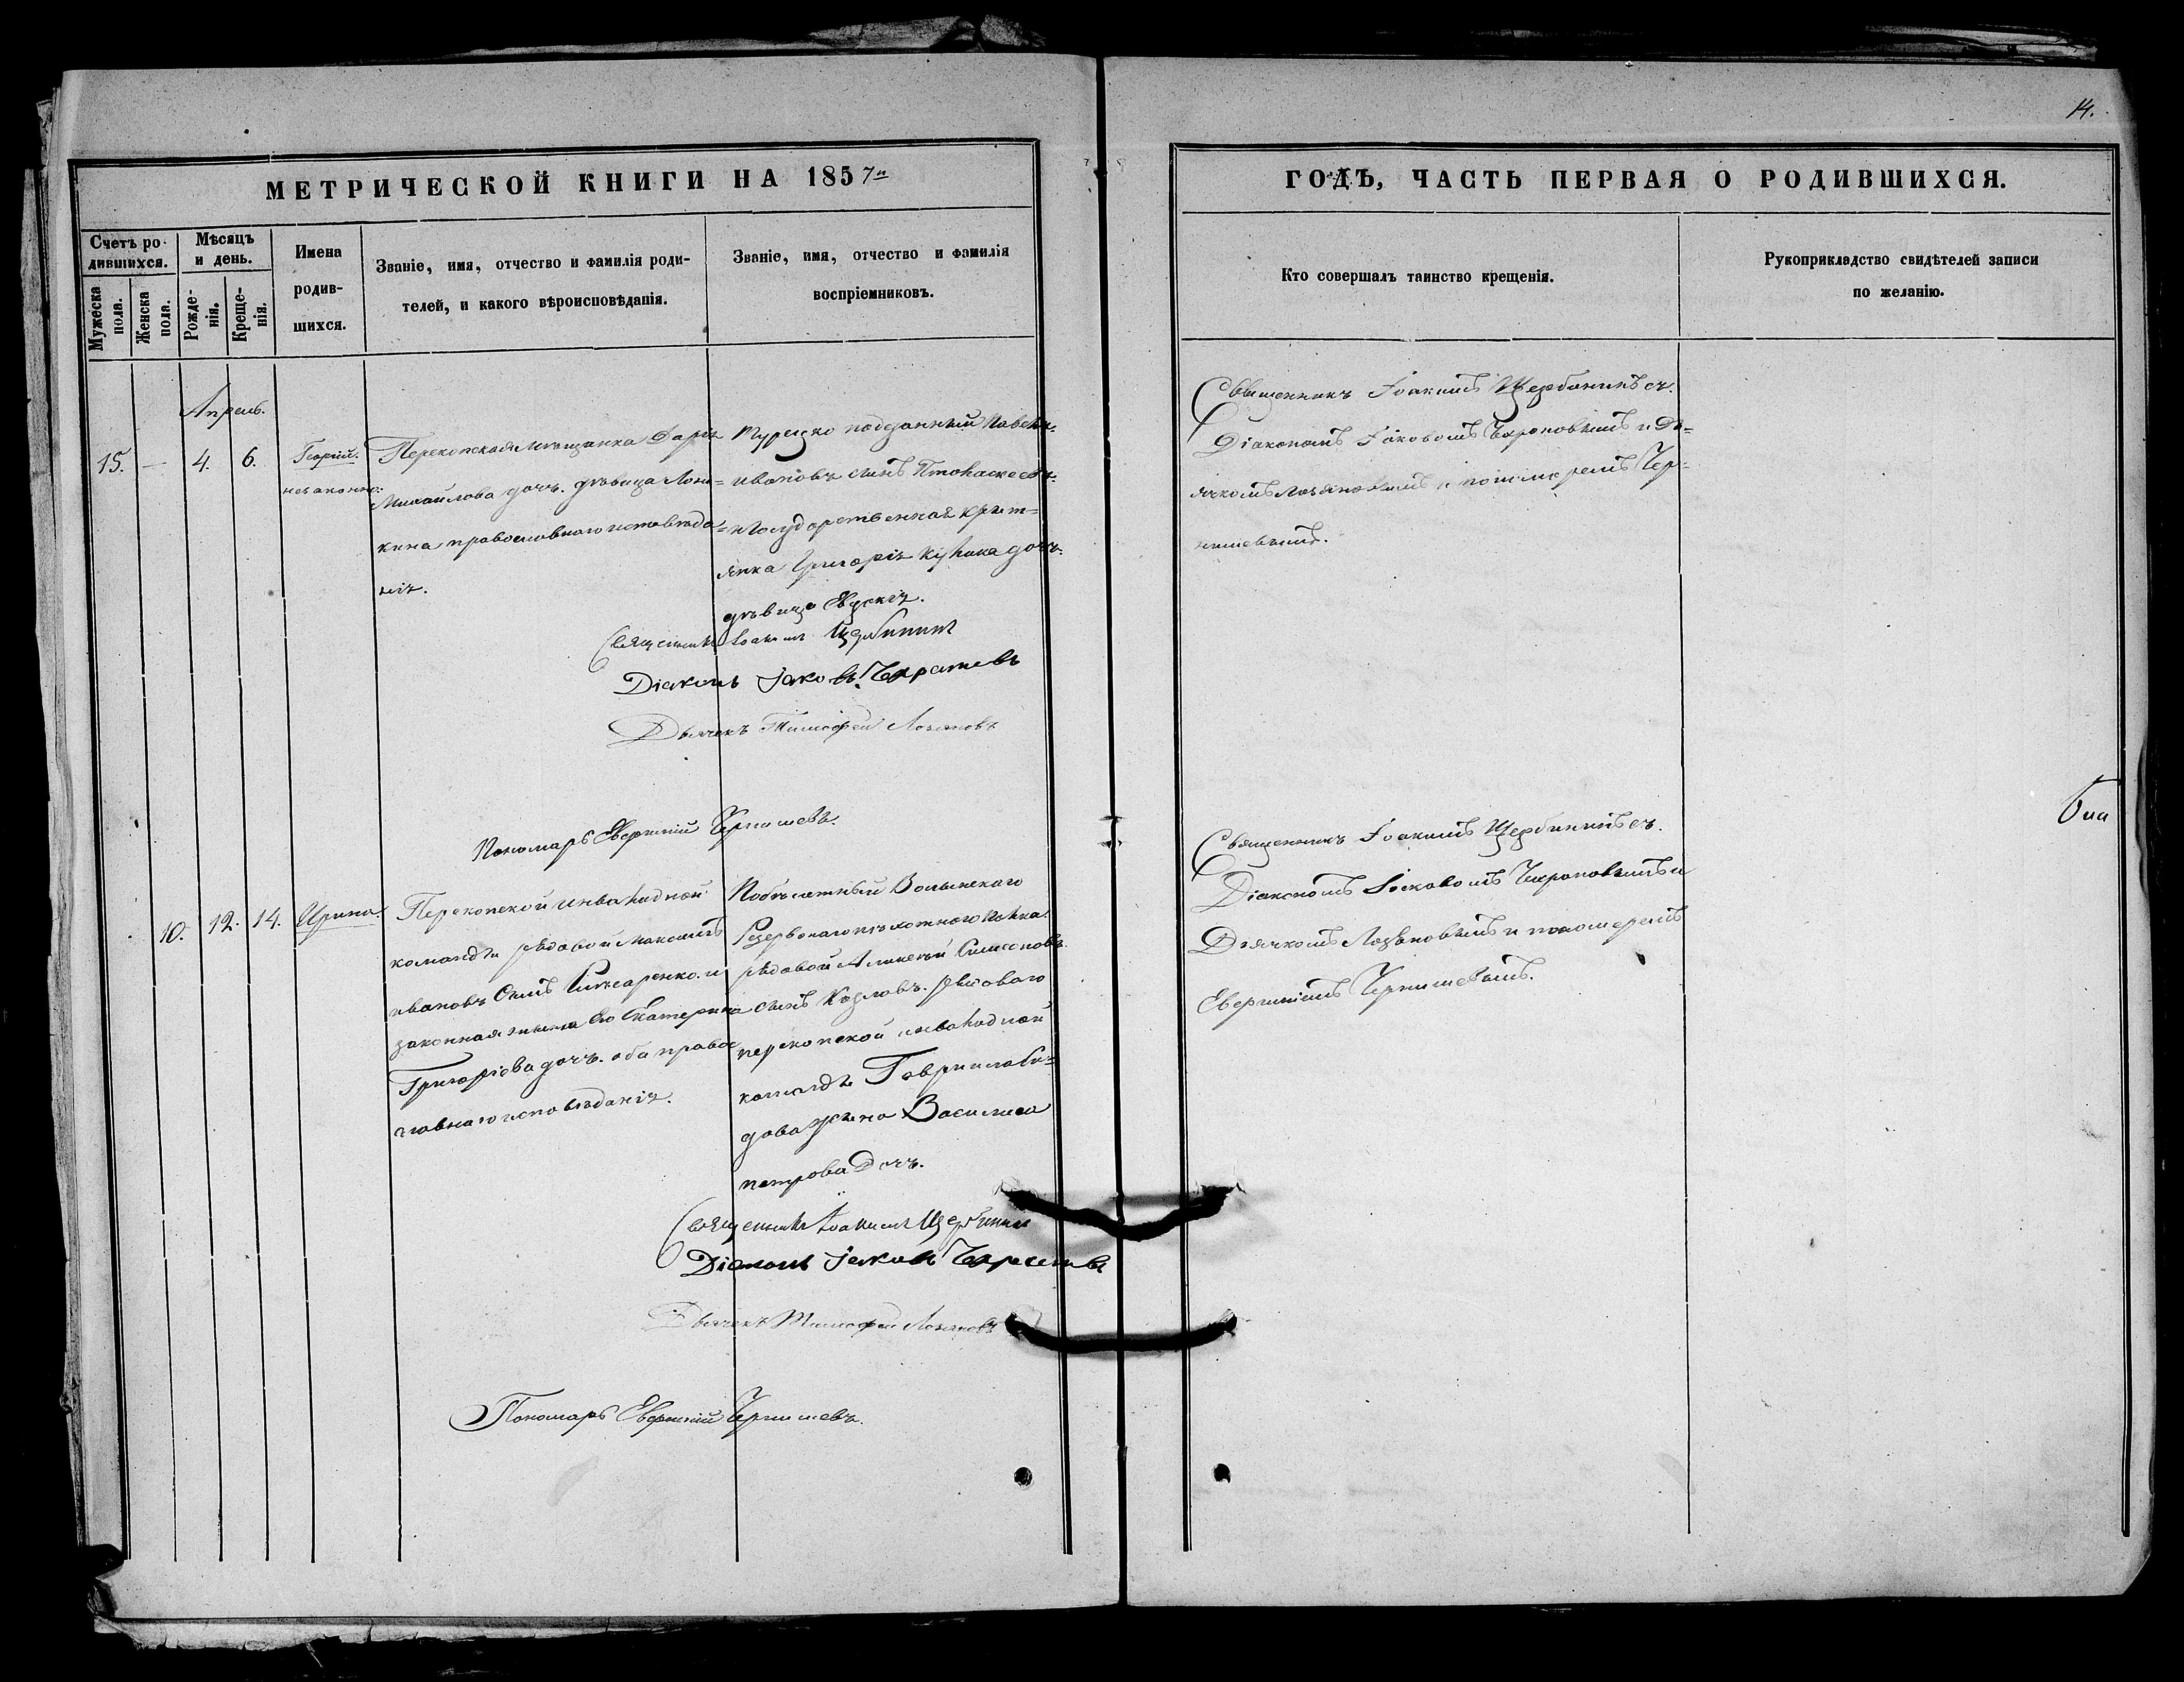 14.
МЕТРИЧЕСКОЙ КНИГИ НА 1857й
ГОДЪ, ЧАСТЬ ПЕРВАЯ О РОДИВШИХСЯ.
Счетъ родившихся.
Мужеска пола.
Женска пола.
Мѣсяцъ и день.
Рожденія.
Крещенія.
Имена родив-
шихся.
Званіе, имя, отчество и фамилія роди-
телей, и какого вѣроисповѣданія.
Званіе, имя, отчество и фамилія
воспріемниковъ.
Кто совершалъ таинство крещенія.
Рукоприкладство свидѣтелей записи
по желанію.
Апрель.
15. — 4. 6.
Георгій.
незаконно:
Перекопская мѣщанка Дарія
Михайлова дочь. дѣвица
кина православнаго исповѣда=
нія.
Турецко подданный Павелъ
Ивановъ сынъ
и Государственная крест=
янка Григорія дочь
дѣвица Евдокія.
Священникъ Іоакимъ Щербининъ съ
Діакономъ Іаковомъ и Дь=
ячкомъ и пономаремъ Чер=
нишевымъ.
Священникъ Іоакимъ Щербининъ
Діаконъ Іаковъ
Дьячекъ Тимофей
Пономарь Чернишевъ.
10. 12. 14.
Ирина.
Перекопской инвалидной
команды рядовой Максимъ
Ивановъ Сынъ и
законная жена Его Екатерина
Григоріева дочь. оба правос
лавнаго исповѣданія.
Волынскаго
Резервнаго пѣхотнаго полка
рядовой Алексѣй Симеоновъ
сынъ Козловъ. рядоваго
перекопской инвалидной
команды Гавриила
дова жена Василиса
петрова Дочь.
Священникъ Іоакимъ Щербининъ съ
Діакономъ Іаковомъ и
Дьячкомъ и пономаремъ
Чернишевымъ.
Священникъ Іоакимъ Щербининъ
Діаконъ Іаковъ
Дьячекъ Тимофей
Пономарь Чернишевъ.